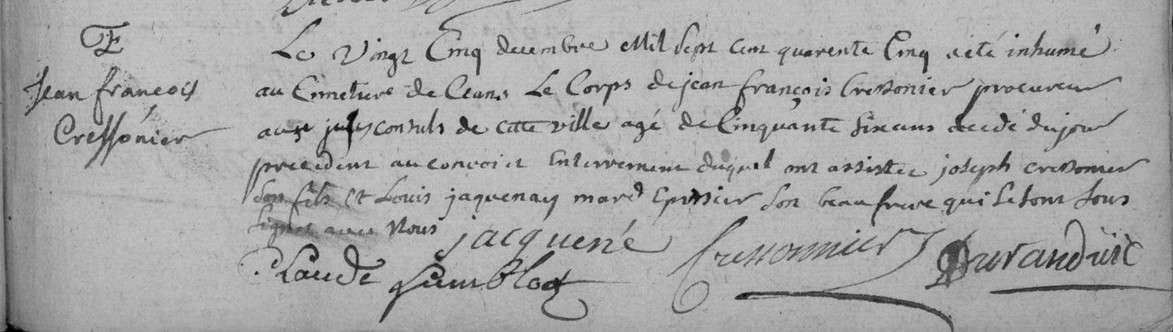 E
Jean francois
Cressonier
Le Vingt Cinq decembre Mil Sept cent quarente Cinq a eté inhumé
au Cimetiere de Ceans Le Corps de jean françois Cressonier procureur
aux juges consuls de cette ville agé de Cinquante Six ans decedé du jour
precedent au convoi et Enterrement duquel ont assistes joseph cressonier
Son fils Et Louis jaquenay mard Epissier Son beau frere qui Se sont Sous
Signes avec Nous
jacquené Cressonnier Durand vic
Claude